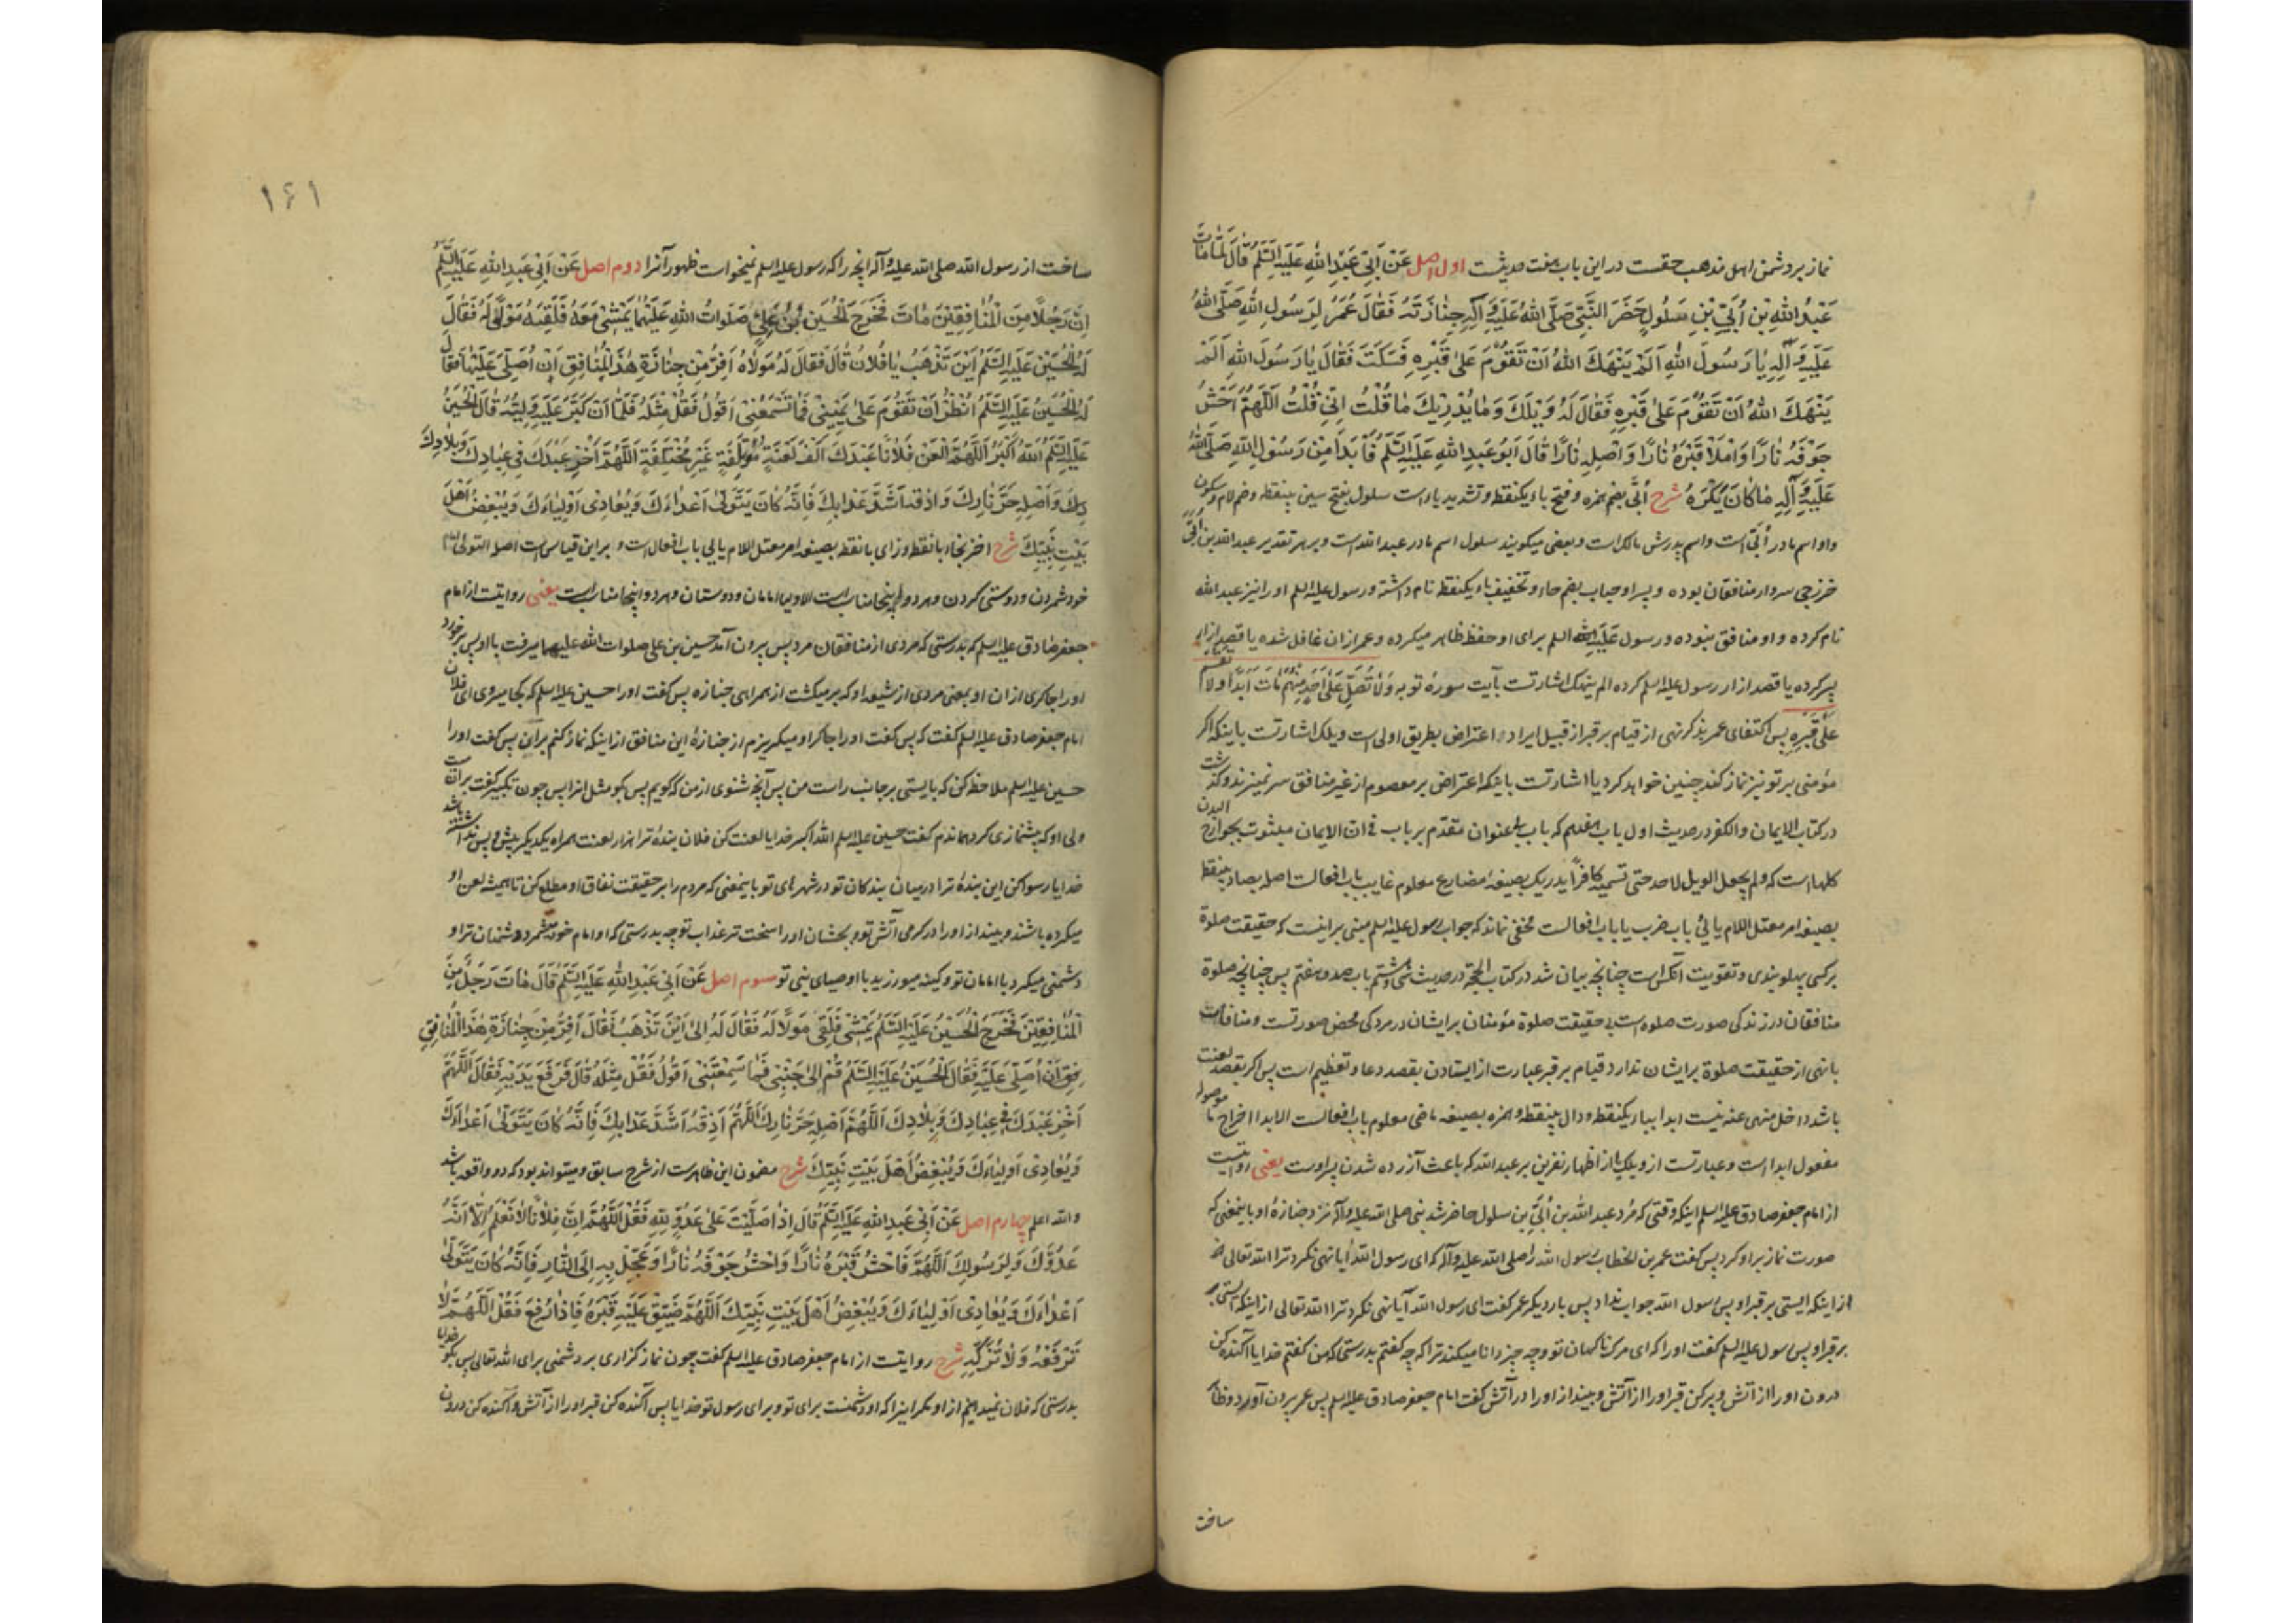 نماز بر دشمن اهل مذهب حقست در این باب هفت حدیثست اول اصل عَنْ اَبِی عَبْدِ اللهِ عَلَیْهِ السَّلَمُ قَالَ لَمَّا مَاتَ
عَبْدُ اللهِ بْنِ اُبَیِّ بْنِ سَلُولٍ حَضَرَ النَّبِیُّ صَلَّی اللهُ عَلَیْهِ وَ آلِهِ جِنَازَتَهُ فَقَالَ عُمَرُ لِرَسُولِ اللهِ صَلَّی اللهُ
عَلَیْهِ وَ آلِهِ یَا رَسُولَ اللهِ اَلَمْ یَنْهَکَ اللهُ اَنْ تَقُومَ عَلَی قَبْرِهِ فَسَکَتَ فَقَالَ یَا رَسُولَ اللهِ اَلَمْ
یَنْهَکَ اللهُ اَنْ تَقُومَ عَلَی قَبْرِهِ فَقَالَ لَهُ وَیْلَکَ وَ مَا یُدْرِیکَ مَا قُلْتُ اِنِّی قُلْتُ اَللَّهُمَّ احْشُ
جَوْفَهُ نَارًا وَ امْلَأْ قَبْرَهُ نَارًا وَ اَصْلِهِ نَارًا قَالَ اَبُو عَبْدِ اللهِ عَلَیْهِ السَّلَمُ فَاَبْدَا مِنْ رَسُولِ اللهِ صَلَّی اللهُ
عَلَیْهِ وَ آلِهِ مَا کَانَ یَکْرَهُ شرح اُبَیّ بضم همزه و فتح باء یکنقطه و تشدید یاء است سلول بفتح سین بینقطه و ضم لام و سکون
واو اسم مادر اُبَیّ است و اسم پدرش مالک است و بعضی میگویند سلول اسم مادر عبدالله است و بر هر تقدیر عبدالله بن اُبَیّ
خزرجی سردار منافقان بوده و پسر او حباب بضم حاء و تخفیف باء یکنقطه نام داشته و رسول علیه السلم او را نیز عبدالله
نام کرده و او منافق نبوده و رسول علیه السلم برای او حفظ ظاهر میکرده و عمر ازان غافل شده یا قصد آزار
پسر کرده یا قصد آزار رسول علیه السلم کرده الم ینهک اشارتست بآیت سورهٔ توبه وَ لَا تُصَلِّ عَلَی اَحَدٍ مِنْهُمْ مَاتَ اَبَدًا وَ لَا تَقُمْ
عَلَی قَبْرِهِ پس اکتفای عمر بذکر نهی از قیام بر قبر از قبیل ایراد اعتراض بطریق اولی است ویلک اشارتست باینکه اگر
مؤمنی بر تو نیز نماز کند چنین خواهد کرد یا اشارتست باینکه اعتراض بر معصوم از غیر منافق سر نمیزند و گذشت
در کتاب الایمان و الکفر در حدیث اول باب هفدهم که باب بلا عنوان متقدم بر باب فی ان الایمان مبثوث بجوارح البدن
کلها است که و لم یجعل الویل لاحد حتی تسمیه کافراً یدریک بصیغهٔ مضارع معلوم غایب باب افعالست اصله بصاد بینقطه
بصیغهٔ امر معتل اللام یائی باب ضرب یا باب افعالست مخفی نماند که جواب رسول علیه السلم مبنی بر اینست که حقیقت صلوة
بر کسی پهلو بندی و تقویت آنکس است چنانچه بیان شد در کتاب الحجة در حدیث باب صد و هفتم پس چنانچه صلوة
منافقان در زندگی صورت صلوة است بی حقیقت صلوة مؤمنان بر ایشان در مردگی محض صورتست و منافات
با نهی از حقیقت صلوة بر ایشان ندارد و قیام بر قبر عبارت از ایستادن بقصد دعا و تعظیم است پس اگر بقصد لعنت
باشد داخل منهی عنه نیست ابدا بباء یکنقطه و دال بینقطه و همزه بصیغهٔ ماضی معلوم باب افعالست الابدا اخراج ما موصوله
مفعول ابدا است و عبارتست از ویلک یا از اظهار نفرین بر عبدالله که باعث آزرده شدن پسر اوست یعنی روایتست
از امام جعفر صادق علیه السلم اینکه وقتی که مُرد عبدالله بن اُبَیّ بن سلول حاضر شد نبی صلی الله علیه و آله نزد جنازهٔ او باینمعنی که
صورت نماز بر او کرد پس گفت عمر بن الخطاب رسول الله را صلی الله علیه و آله که ای رسول الله آیا نهی نکرد ترا الله تعالی
از اینکه ایستی بر قبر او پس رسول الله جواب نداد پس بار دیگر عمر گفت ای رسول الله آیا نهی نکرد ترا الله تعالی از اینکه ایستی
بر قبر او پس رسول علیه السلم گفت او را که ای مرگ ناگهان تو و چه چیز دانا میکند ترا که چه گفتم بدرستی که من گفتم خدایا آگنده کن
درون او را از آتش و پر کن قبر او را از آتش و بینداز او را در آتش گفت امام جعفر صادق علیه السلم پس عمر بیرون آورد و ظاهر
ساخت
١٤١
ساخت از رسول الله صلی الله علیه و آله آنچه را که رسول علیه السلم نمیخواست ظهور آنرا دوم اصل عَنْ اَبِی عَبْدِ اللهِ عَلَیْهِ السَّلَمُ
اِنَّ رَجُلًا مِنَ الْمُنَافِقِینَ مَاتَ فَخَرَجَ الْحُسَیْنُ بْنُ عَلِیٍّ صَلَوَاتُ اللهِ عَلَیْهِمَا یَمْشِی مَعَهُ فَلَقِیَهُ مَوْلًی لَهُ فَقَالَ
لَهُ الْحُسَیْنُ عَلَیْهِ السَّلَمُ اَیْنَ تَذْهَبُ یَا فُلَانُ قَالَ فَقَالَ لَهُ مَوْلَاهُ اَفِرُّ مِنْ جِنَازَةِ هٰذَا الْمُنَافِقِ اَنْ اُصَلِّیَ عَلَیْهَا فَقَالَ
لَهُ الْحُسَیْنُ عَلَیْهِ السَّلَمُ اُنْظُرْ اَنْ تَقُومَ عَلَی یَمِینِی فَمَا تَسْمَعُنِی اَقُولُ فَقُلْ مِثْلَهُ فَلَمَّا اَنْ کَبَّرَ عَلَیْهِ وَلِیُّهُ قَالَ الْحُسَیْنُ
عَلَیْهِ السَّلَمُ اَللهُ اَکْبَرُ اَللَّهُمَّ الْعَنْ فَلَانًا عَبْدَکَ اَلْفَ لَعْنَةٍ مُؤْتَلِفَةٍ غَیْرِ مُخْتَلِفَةٍ اَللَّهُمَّ اَخْزِ عَبْدَکَ فِی عِبَادِکَ وَ بِلَادِکَ
وَ اَصْلِهِ حَرَّ نَارِکَ وَ اَذِقْهُ اَشَدَّ عَذَابِکَ فَاِنَّهُ کَانَ یَتَوَلَّی اَعْدَاءَکَ وَ یُعَادِی اَوْلِیَاءَکَ وَ یُبْغِضُ اَهْلَ
بَیْتِ نَبِیِّکَ شرح اخز بخاء با نقطه و زای با نقطه بصیغهٔ امر معتل اللام یائی باب افعال است و برین قیاس است اصله التولی امام
خود شمردن و دوستی کردن و هر دو اینجا مناسب است الاولیا امامان و دوستان و هر دو اینجا مناسب است یعنی روایتست از امام
جعفر صادق علیه السلم که بدرستی که مردی از منافقان مرد پس بیرون آمد حسین بن علی صلوات الله علیهما میرفت با او پس برخورد
او را چاکری ازان او یعنی مردی از شیعهٔ او که بر میگشت از همراهی جنازه پس گفت او را حسین علیه السلم که بکجا میروی ای فلان
امام جعفر صادق علیه السلم گفت که پس گفت او را چاکر او میگریزم از جنازهٔ این منافق از اینکه نماز کنم بران پس گفت او را
حسین علیه السلم ملاحظه کن که بایستی بر جانب راست من پس آنچه شنوی از من که گویم پس بگو مثل انرا پس چون تکبیر گفت بران میت
ولی او که پیشنمازی کرد گفت حسین علیه السلم الله اکبر خدایا لعنت کن فلان بندهٔ ترا هزار لعنت همراه یکدیگر پیش و پس نداشته باشد
خدایا رسوا کن این بندهٔ ترا درمیان بندگان تو و در شهرهای تو باینمعنی که مردم را بر حقیقت نفاق او مطلع کن تا همیشه لعن او
میکرده باشند و بینداز او را در گرمی آتش تو و بچشان او را سخت تر عذاب تو چه بدرستی که او امام خود میشمرد دشمنان ترا و
دشمنی میکرد با امامان تو و کینه میورزید با اوصیای نبی تو سوم اصل عَنْ اَبِی عَبْدِ اللهِ عَلَیْهِ السَّلَمُ قَالَ مَاتَ رَجُلٌ مِنَ
الْمُنَافِقِینَ فَخَرَجَ الْحُسَیْنُ عَلَیْهِ السَّلَمُ یَمْشِی فَلَقِیَ مَوْلًا لَهُ فَقَالَ لَهُ اِلَی اَیْنَ تَذْهَبُ فَقَالَ اَفِرُّ مِنْ جِنَازَةِ هٰذَا الْمُنَافِقِ
اَنْ اُصَلِّیَ عَلَیْهِ فَقَالَ الْحُسَیْنُ عَلَیْهِ السَّلَمُ قُمْ اِلَی جَنْبِی فَمَا سَمِعْتَنِی اَقُولُ فَقُلْ مِثْلَهُ قَالَ فَرَفَعَ یَدَیْهِ فَقَالَ اَللَّهُمَّ
اَخْزِ عَبْدَکَ فِی عِبَادِکَ وَ بِلَادِکَ اَللَّهُمَّ اَصْلِهِ حَرَّ نَارِکَ اَللَّهُمَّ اَذِقْهُ اَشَدَّ عَذَابِکَ فَاِنَّهُ کَانَ یَتَوَلَّی اَعْدَاءَکَ
وَ یُعَادِی اَوْلِیَاءَکَ وَ یُبْغِضُ اَهْلَ بَیْتِ نَبِیِّکَ شرح مضمون این ظاهرست از شرح سابق و میتواند بود که دو واقعه باشد
والله اعلم چهارم اصل عَنْ اَبِی عَبْدِ اللهِ عَلَیْهِ السَّلَمُ قَالَ اِذَا صَلَّیْتَ عَلَی عَدُوٍّ لِلّٰهِ فَقُلْ اَللَّهُمَّ اِنَّ فِلَانًا لَا نَعْلَمُ اِلَّا اَنَّهُ
عَدُوٌّکَ وَ لِرَسُولِکَ اَللَّهُمَّ فَاحْشُ قَبْرَهُ نَارًا وَ احْشُ جَوْفَهُ نَارًا وَ عَجِّلْ بِهِ اِلَی النَّارِ فَاِنَّهُ کَانَ یَتَوَلَّی
اَعْدَاءَکَ وَ یُعَادِی اَوْلِیَاءَکَ وَ یُبْغِضُ اَهْلَ بَیْتِ نَبِیِّکَ اَللَّهُمَّ ضَیِّقْ عَلَیْهِ قَبْرَهُ فَاِذَا رُفِعَ فَقُلْ اَللَّهُمَّ لَا
تَرْفَعْهُ وَ لَا تُزَکِّهِ شرح روایتست از امام جعفر صادق علیه السلم گفت چون نماز گزاری بر دشمنی برای الله تعالی پس بگو خدایا
بدرستی که فلان نمیدانیم از او مگر اینرا که او دشمنست برای تو و برای رسول تو خدایا پس آگنده کن قبر او را از آتش و آگنده کن درون